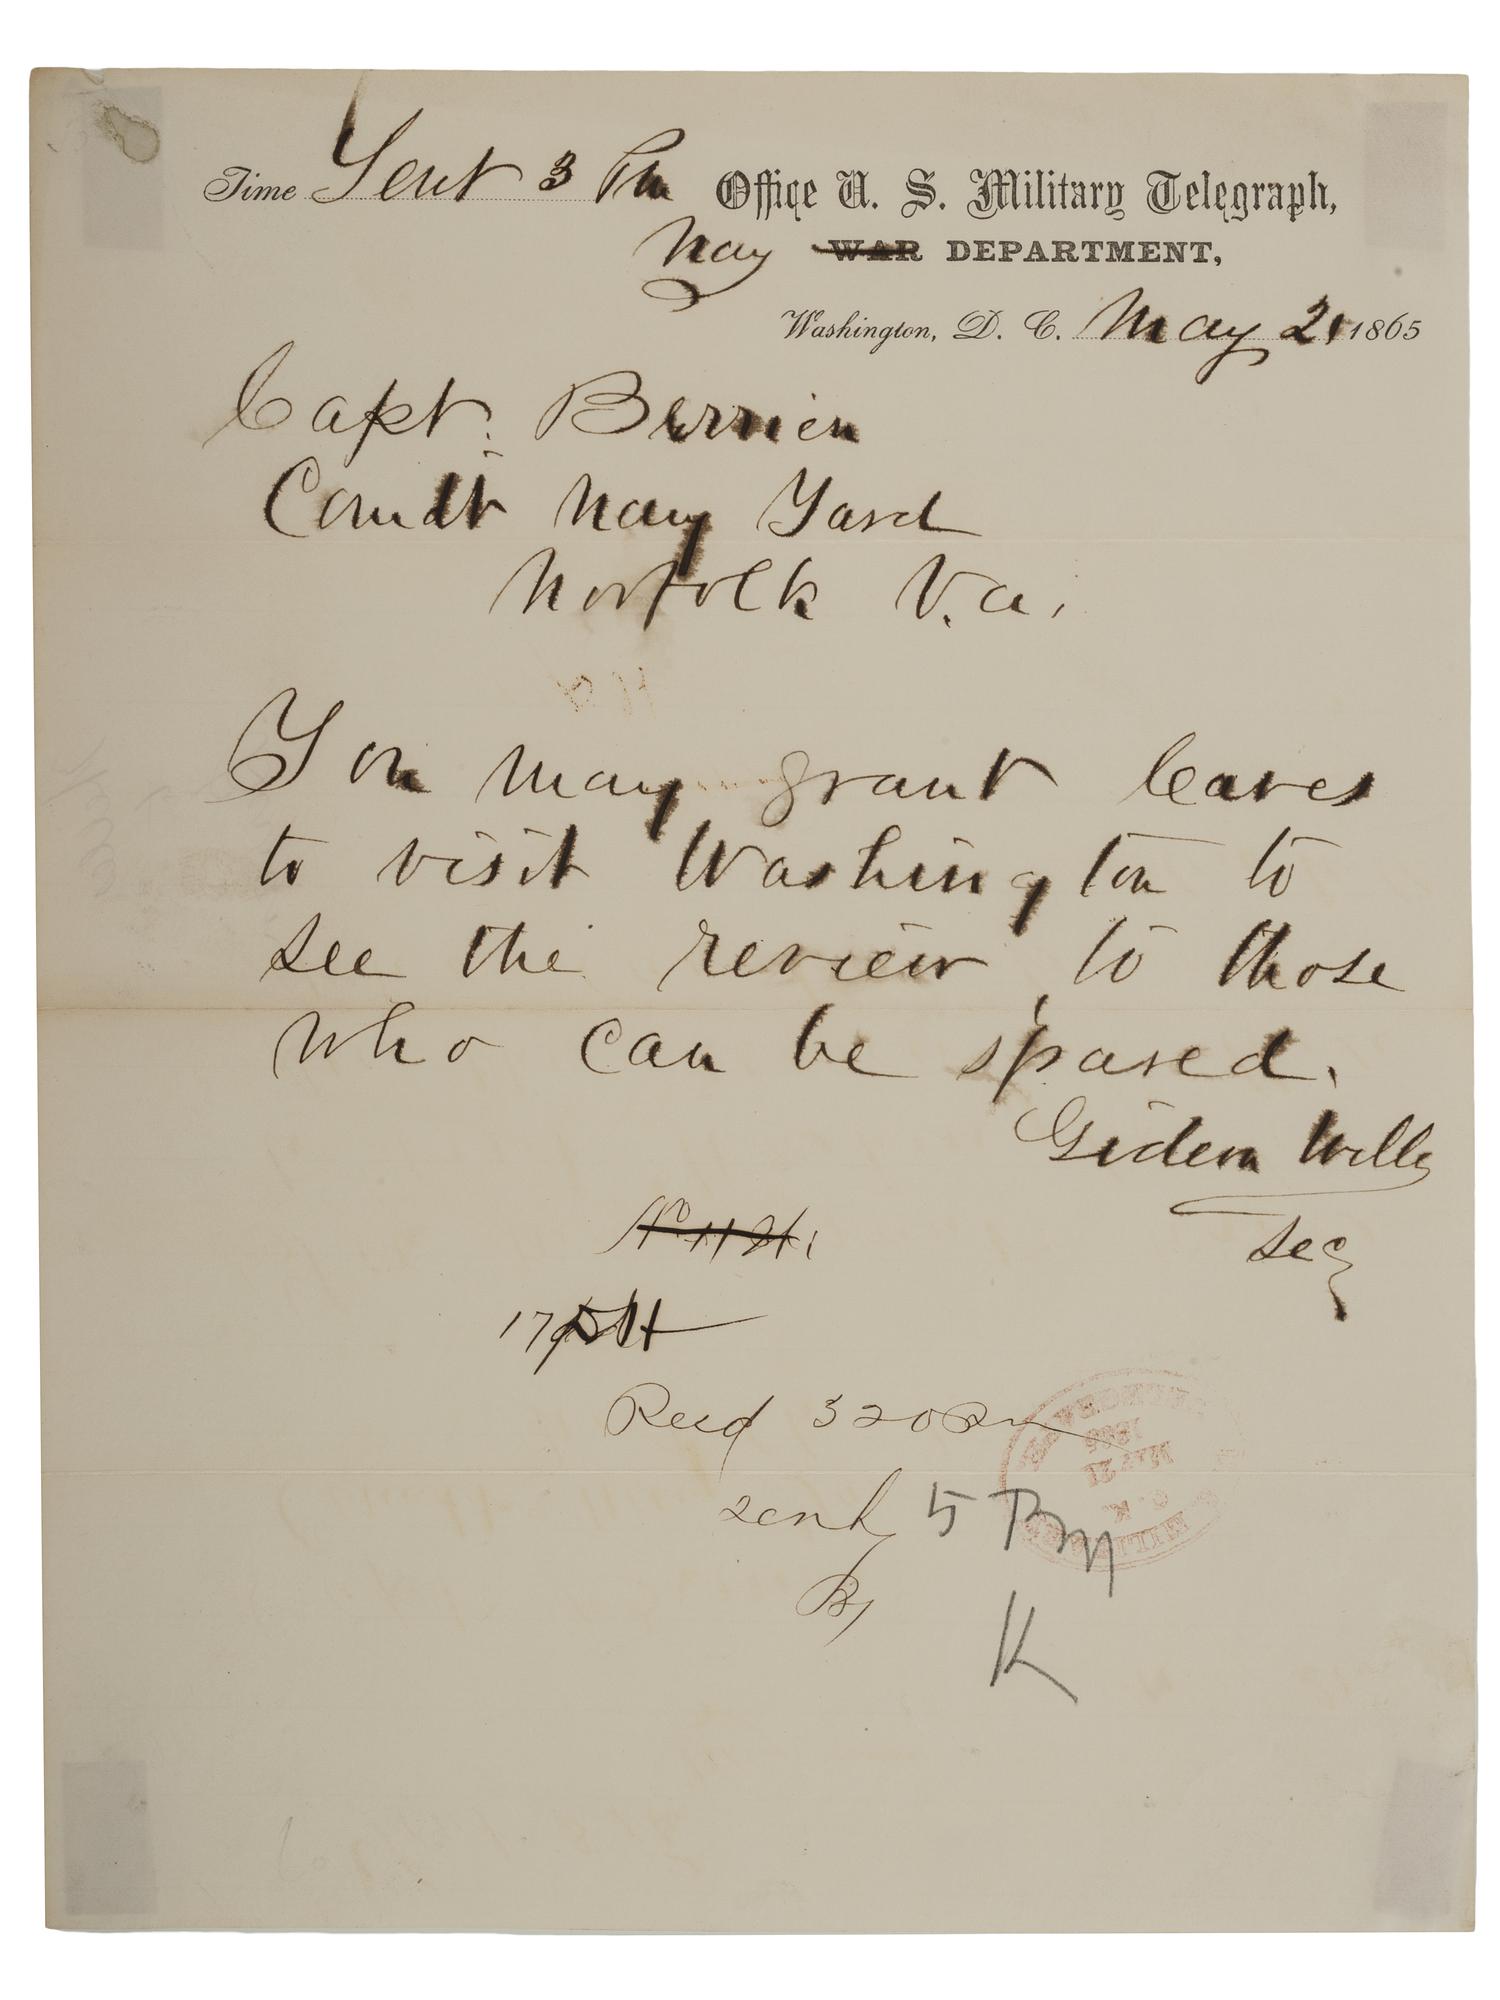 Time Sent 3 Pm Office U. S. Military Telegraph,
Navy WAR DEPARTMENT,
Washington, D. C. May 21 1865
Capt. Berrien
Comdt Navy Yard
Norfolk Va.
You may grant leaves
to visit Washington to
see the review, to those
who can be spared.
Gideon Welles
Secy
17
Recd 320 Pm
Sent 5 Pm
By
K
MAY 21
1865